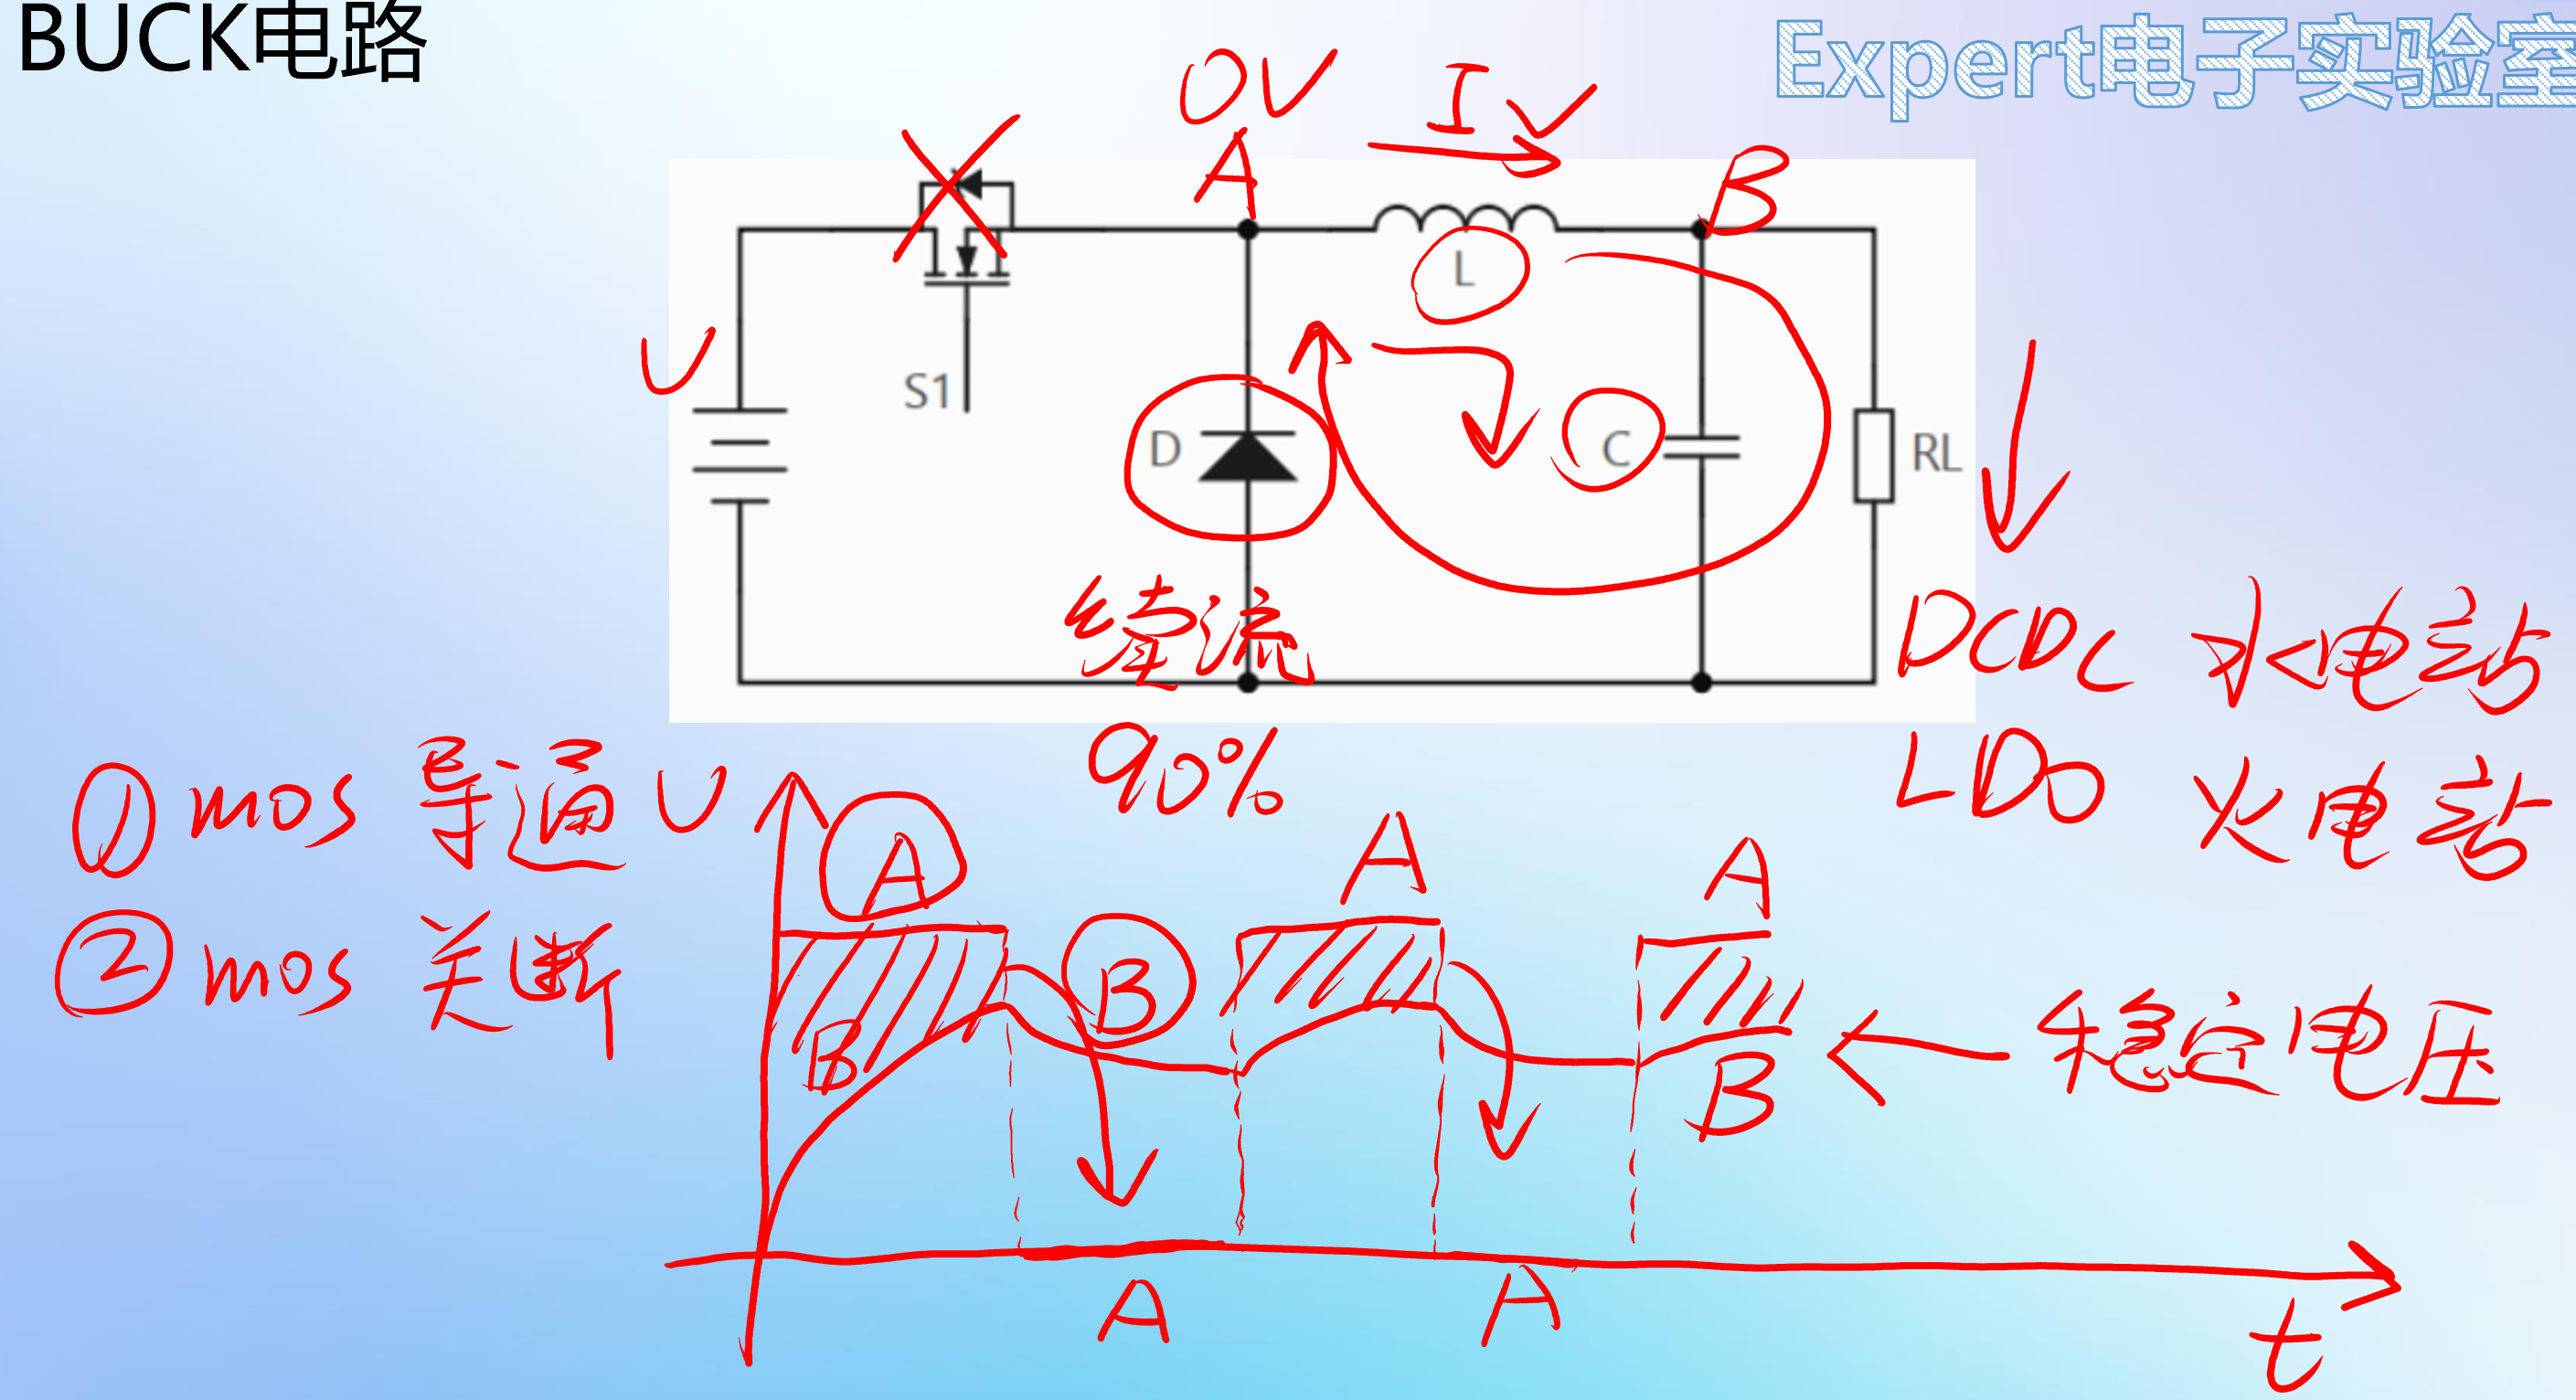 BUCK电路
Expert电子实验室
0V
I
A
B
L
U
S1
D
C
RL
续流
DCDC 水电站
90%
LDO 火电站
① mos 导通
U
A
A
A
② mos 关断
B
B
B
稳定电压
A
A
t